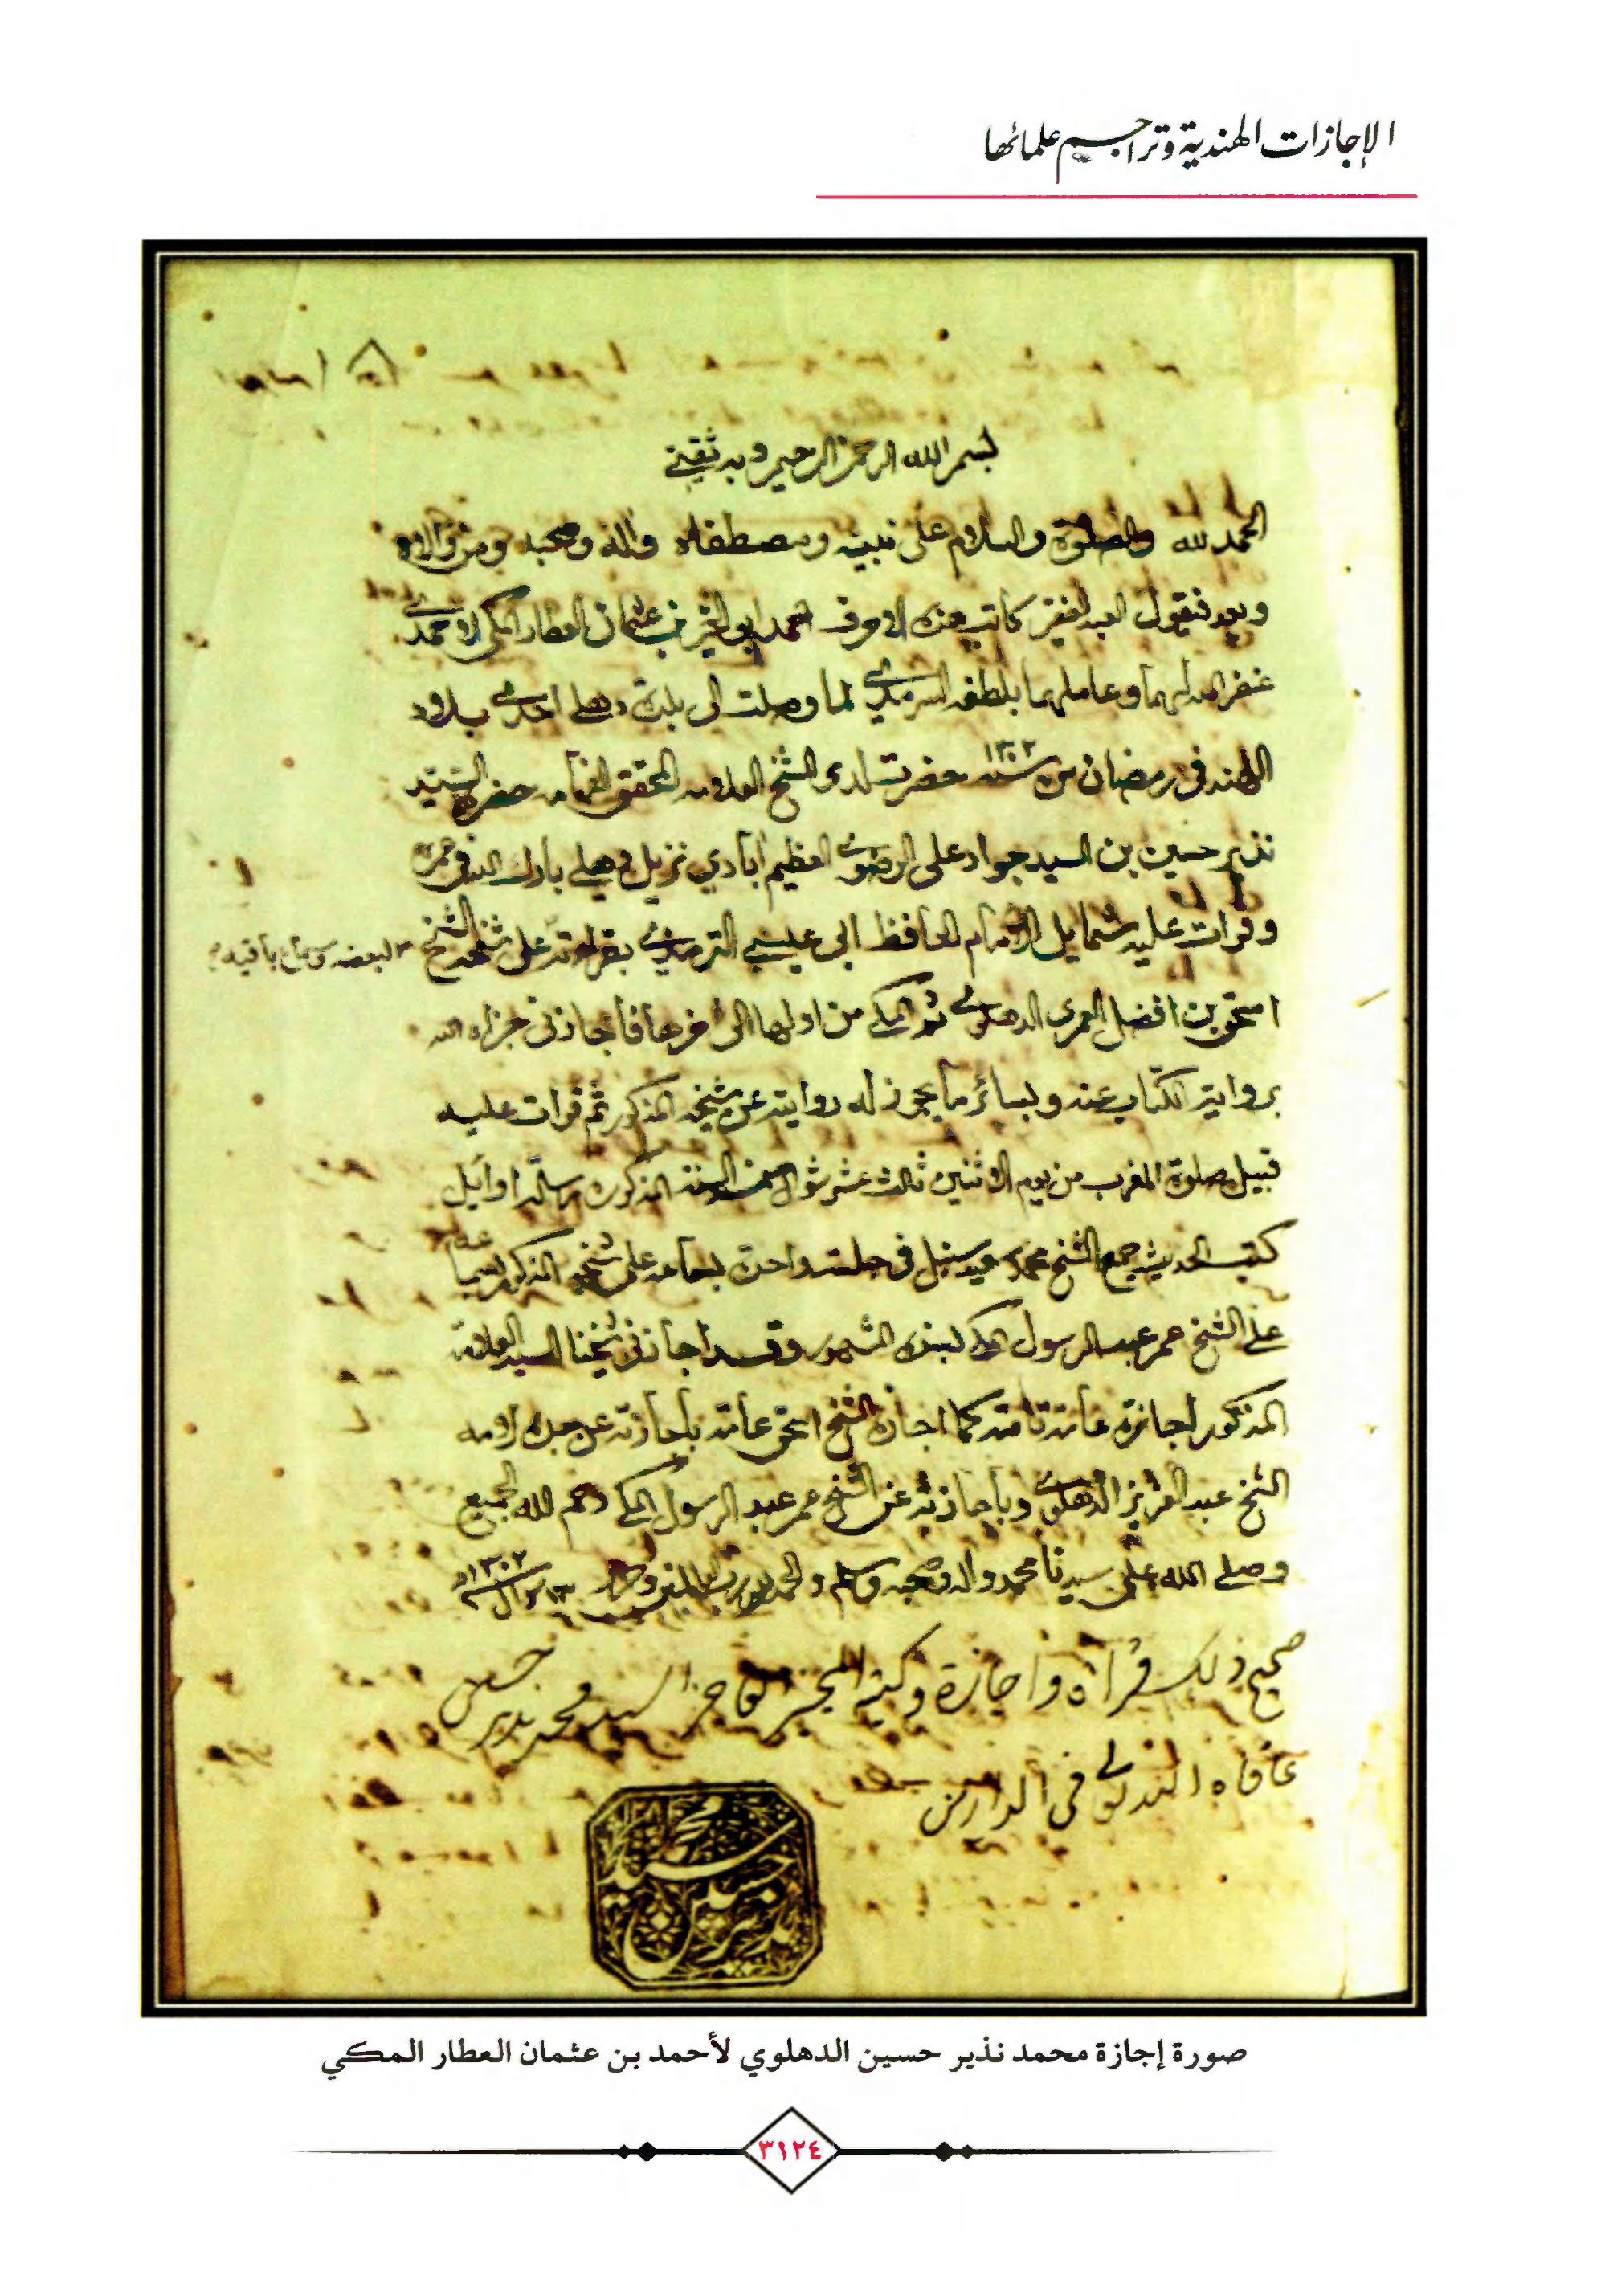 الإجازات الهندية وتراجم علمائها
بسم الله الرحمن الرحيم وبه ثقتي
الحمد لله والصلوة والسلام على نبيه ومصطفاه واله وصحبه ومن والاه
وبعد فيقول العبد الفقير كاتب هذه الاحرف احمد ابو الخير بن عثمان العطار المكي الاحمدي
غفر الله لهما وعاملهما بلطفه السرمدي لما وصلت الى بلدة دهلي احدى بلاد
الهند في رمضان من سنة ١٣٠٢ حضرت لدى الشيخ العلامه المحقق الفهامه حضرة السيد
نذير حسين بن السيد جواد على الرضوي العظيم ابادي نزيل دهلي بارك الله في عمره
وقرات عليه شمايل الامام الحافظ ابى عيسي الترمذي بقراءته على شيخه الشيخ
لبعضه وسماع باقيه
اسحق بن افضل العمرى الدهلوي ثم المكي من اولها الى اخرها فاجازنى جزاه الله
برواية الكتاب عنه وبسائر ما يجوز له روايته عن شيخه المذكور ثم قرات عليه
قبيل صلوة المغرب من يوم الاثنين ثالث عشر شوال من السنة المذكوره رسالة اوايل
كتب الحديث جمع الشيخ محمد سعيد سنبل فى جلسة واحدة بسماعه على شيخه المذكور بسماعه
على الشيخ عمر عبد الرسول المكي بسنده المشهور وقد اجازنى شيخنا السيد العلامة
المذكور اجازة عامة تامة كما اجازه الشيخ اسحق عامة باجازته عن جده لامه
الشيخ عبد العزيز الدهلوي وباجازته عن الشيخ عمر عبد الرسول المكي رحم الله الجميع
وصلى الله على سيدنا محمد واله وصحبه وسلم والحمد لله رب العالمين وحرر ١٣ شوال سنة ١٣٠٢
صحيح ذلك قراءة واجازة وكتبه المجيز العاجز السيد محمد نذير حسين
عافاه الله تعالى فى الدارين
نذير حسين
صورة إجازة محمد نذير حسين الدهلوي لأحمد بن عثمان العطار المكي
٣١٢٤